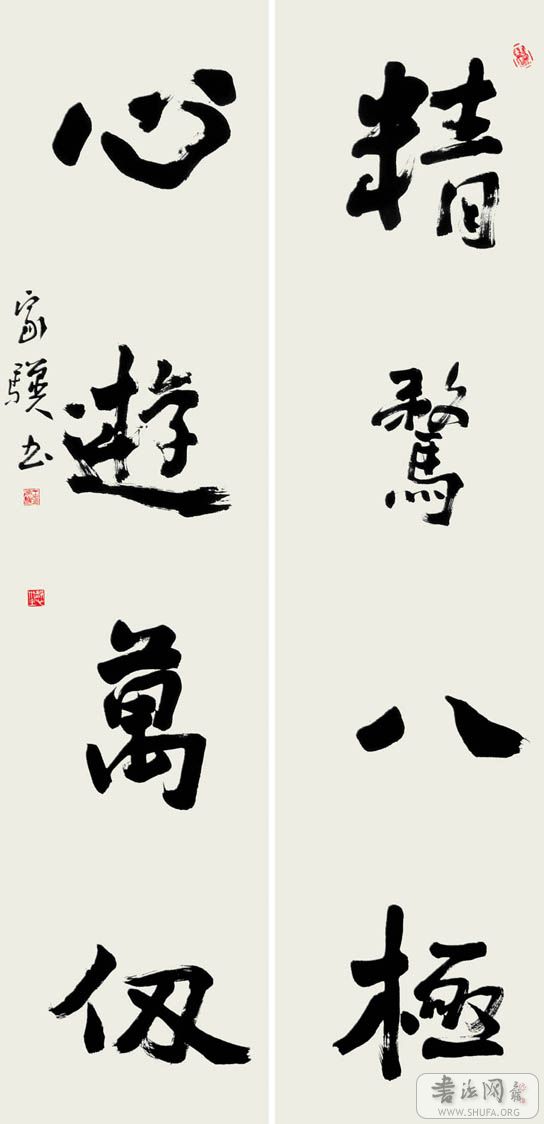 精骛八極
心遊萬仞
家骥书
書法网
WWW.SHUFA.ORG